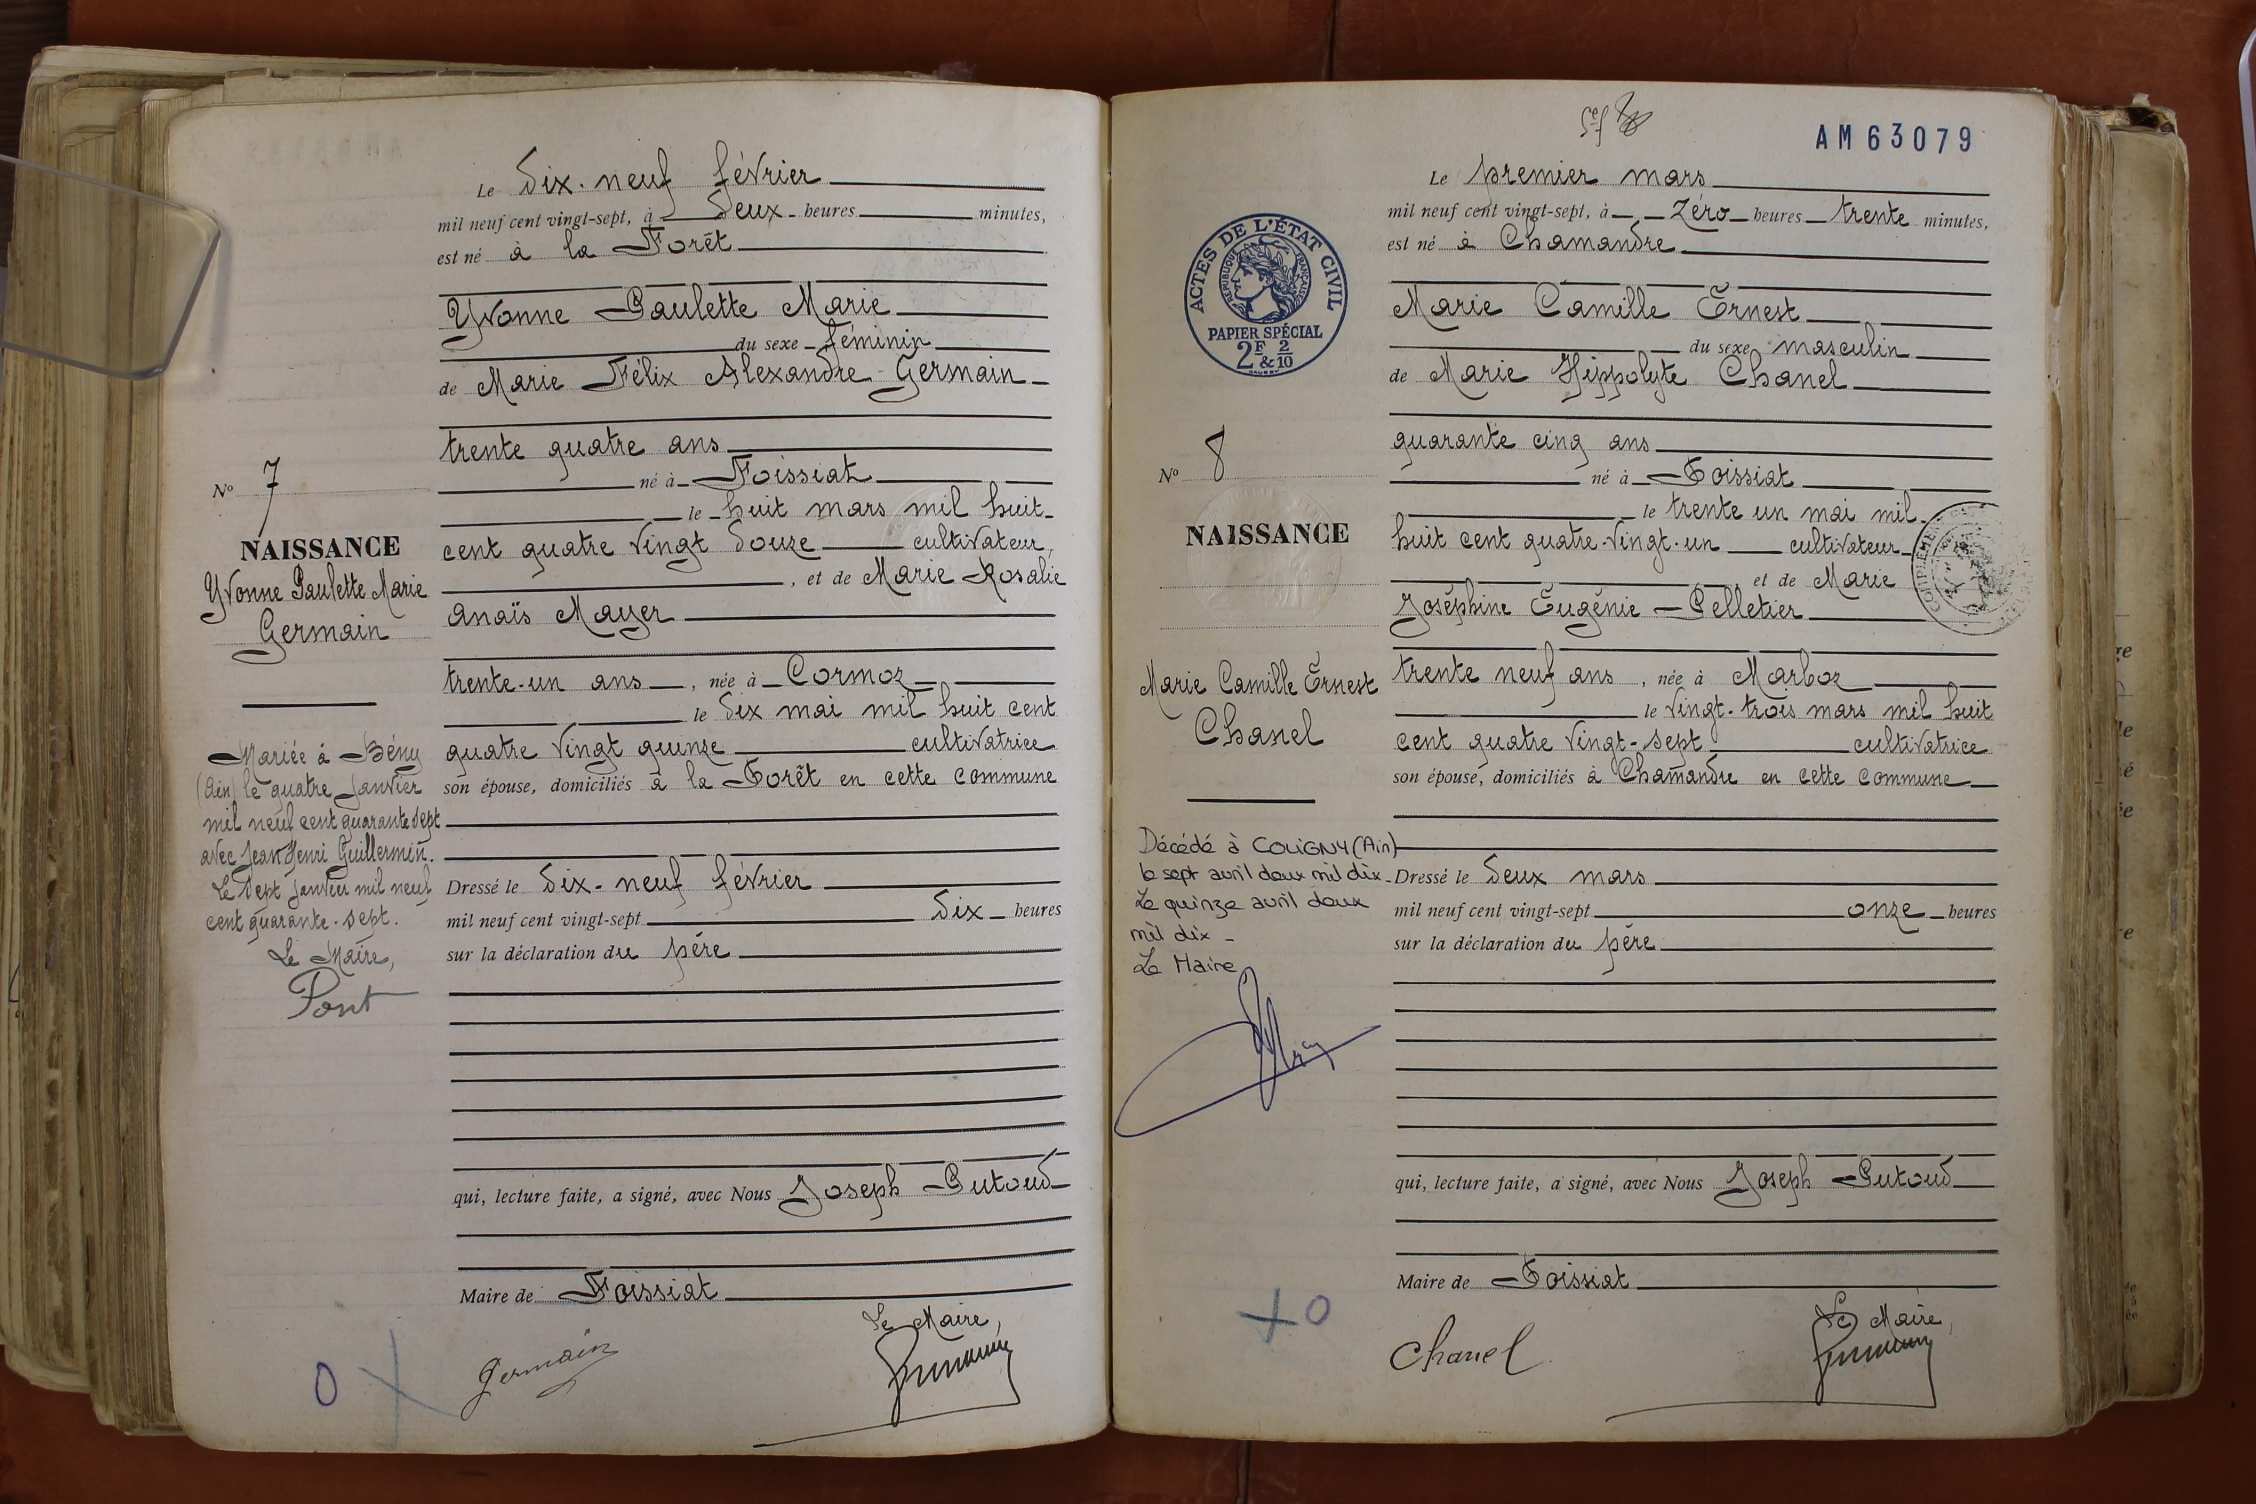 Le dix-neuf février
mil neuf cent vingt-sept, à deux heures minutes,
est né à la Forêt
Yvonne Paulette Marie
du sexe féminin
de Marie Félix Alexandre Germain
trente quatre ans
né à Foissiat
le huit mars mil huit
cent quatre vingt douze cultivateur,
, et de Marie Rosalie
Anaïs Mayer
trente-un ans, née à Cormoz
le dix mai mil huit cent
quatre vingt quinze cultivatrice
son épouse, domiciliés à la Forêt en cette commune
Dressé le dix-neuf février
mil neuf cent vingt-sept dix heures
sur la déclaration du père
qui, lecture faite, a signé, avec Nous Joseph Putoud
Maire de Foissiat
Le Maire,
Germain
No 7
NAISSANCE
Yvonne Paulette Marie
Germain
Mariée à Bény
(Ain) le quatre janvier
mil neuf cent quarante sept
avec Jean Henri Guillermin.
Le sept janvier mil neuf
cent quarante-sept.
Le Maire,
Pont
O X
AM63079
Le premier mars
mil neuf cent vingt-sept, à zéro heures trente minutes,
est né à Chamandre
Marie Camille Ernest
du sexe masculin
de Marie Hippolyte Chanel
quarante cinq ans
né à Foissiat
le trente un mai mil
huit cent quatre-vingt-un cultivateur
et de Marie
Joséphine Eugénie Pelletier
trente neuf ans, née à Marboz
le vingt-trois mars mil huit
cent quatre vingt-sept cultivatrice
son épouse, domiciliés à Chamandre en cette commune
Dressé le deux mars
mil neuf cent vingt-sept onze heures
sur la déclaration du père
qui, lecture faite, a signé, avec Nous Joseph Putoud
Maire de Foissiat
Le Maire,
Chanel
ACTES DE L'ÉTAT CIVIL
RÉPUBLIQUE FRANÇAISE
PAPIER SPÉCIAL
2F & 2/10
No 8
NAISSANCE
Marie Camille Ernest
Chanel
Décédé à COLIGNY (Ain)
le sept avril deux mil dix-
Le quinze avril deux
mil dix-
Le Maire
X O